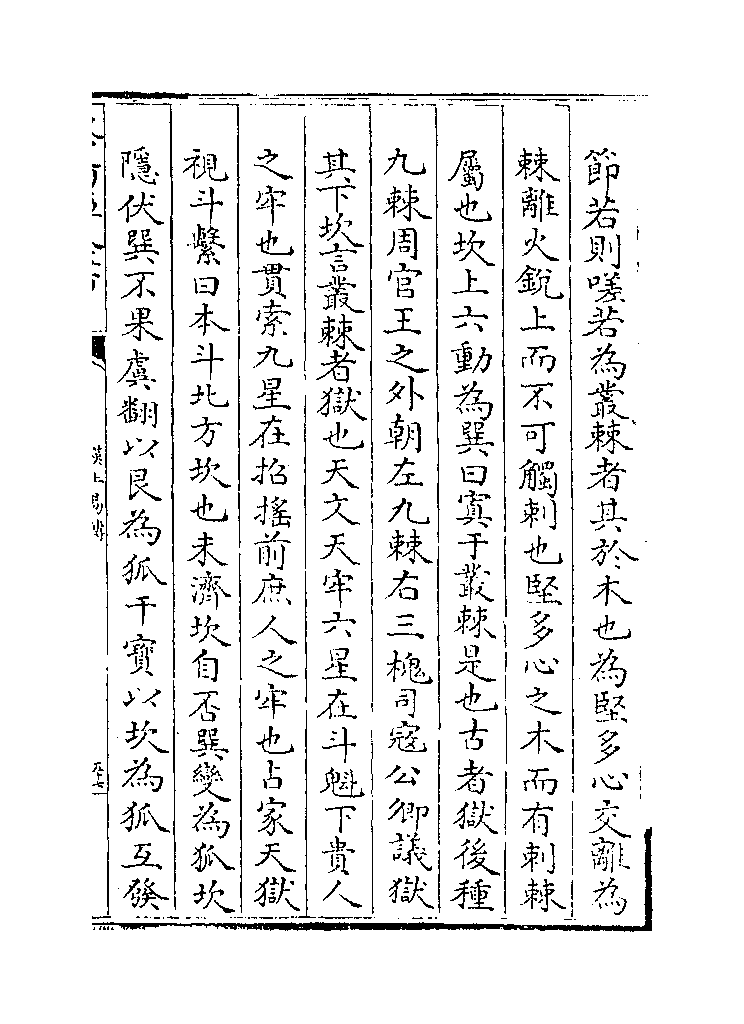 節若則嗟若為叢棘者其於木也為堅多心交離為
棘離火銳上而不可觸刺也堅多心之木而有刺棘
屬也坎上六動為巽曰寘于叢棘是也古者獄後種
九棘周官王之外朝左九棘右三槐司寇公卿議獄
其下坎言叢棘者獄也天文天牢六星在斗魁下貴人
之牢也貫索九星在招搖前庶人之牢也占家天獄
視斗繫曰本斗北方坎也未濟坎自否巽變為狐坎
隱伏巽不果虞翻以艮為狐干寶以坎為狐互發
漢上易傳